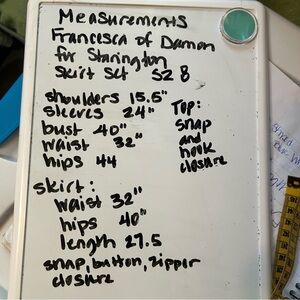 Measurements
Francesca of Damon
for Starington
Skirt Set S2 B
shoulders 15.5"
sleeves 24"
bust 40"
waist 32"
hips 44
Top:
snap
and
hook
closure
skirt:
waist 32"
hips 40"
length 27.5
snap, button, zipper
closure